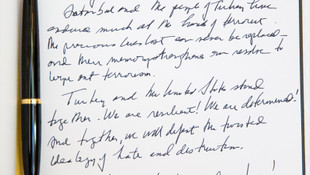 Istanbul and the people of Turkey have
endured much at the hands of terrorists.
The precious lives lost can never be replaced –
and their memory strengthens our resolve to
wipe out terrorism.
Turkey and the United States stand
together. We are resilient! We are determined!
And together, we will defeat the twisted
ideology of hate and destruction.